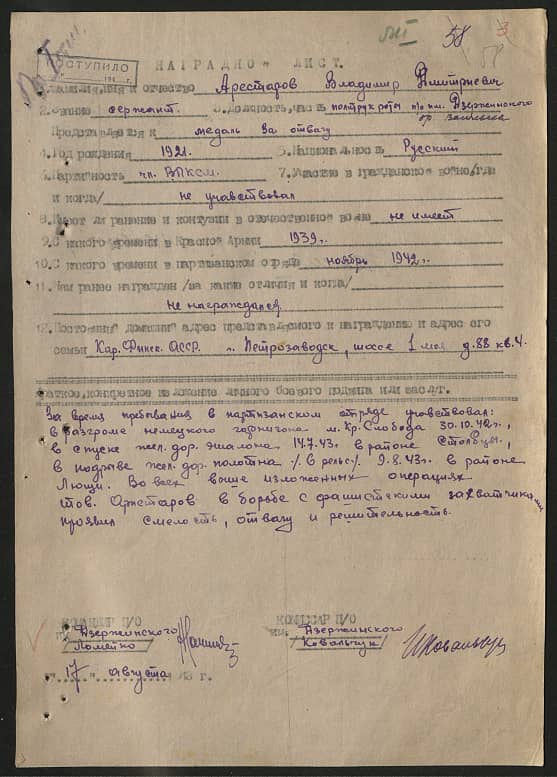 58 3
ПОСТУПИЛО
НАГРАДНОЙ ЛИСТ.
1. Фамилия, имя и отчество Арестаров Владимир Дмитриевич
2. Звание сержант. 3. Должность, часть политрук роты п/о им. Дзержинского
Представляется к медаль за отвагу
4. Год рождения 1921. 5. Национальность Русский
6. Партийность чл. ВЛКСМ. 7. Участие в гражданской войне/где
и когда/ не учавствовал
8. Имеет ли ранение и контузии в отечественной войне не имеет
9. С какого времени в Красной Армии 1939 г.
10. С какого времени в партизанском отряде ноябрь 1942 г.
11. Чем ранее награжден /за какие отличия и когда/
Не награждался.
12. Постоянный домашний адрес представляемого к награждению и адрес его
семьи Кар. Финск. АССР. г. Петрозаводск, шоссе 1 мая д. 88 кв. 4.
Краткое, конкретное изложение личного боевого подвига или заслуг.
За время пребывания в партизанском отряде учавствовал:
в разгроме немецкого гарнизона м. Кр. Слобода 30.10.42 г.,
в спуске жел. дор. эшалона 14.7.43 г. в районе Столбцы.,
в подрыве жел. дор. полотна /в рельс/ 9.8.43 г. в районе
Лющи. Во всех выше изложенных операциях
тов. Арестаров в борьбе с фашистскими захватчиками
проявил смелость, отвагу и решительность.
КОМАНДИР П/О КОМИСАР П/О
им. Дзержинского им. Дзержинского
/Ломейко/ /Ковальчук/
"17" августа 43 г.